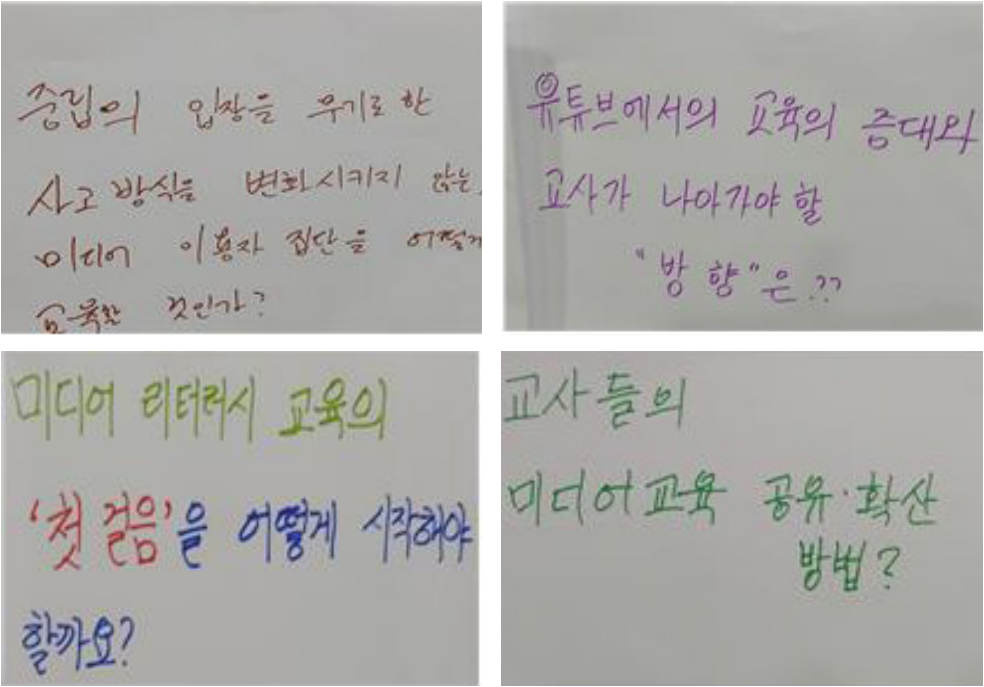 중립의 입장을 무기로 한
사고 방식을 변화시키지 않는
미디어 이용자 집단을 어떻게
교육할 것인가?
유튜브에서의 교육의 증대와
교사가 나아가야 할
"방향"은??
미디어 리터러시 교육의
'첫 걸음'을 어떻게 시작해야
할까요?
교사들의
미디어교육 공유·확산
방법?